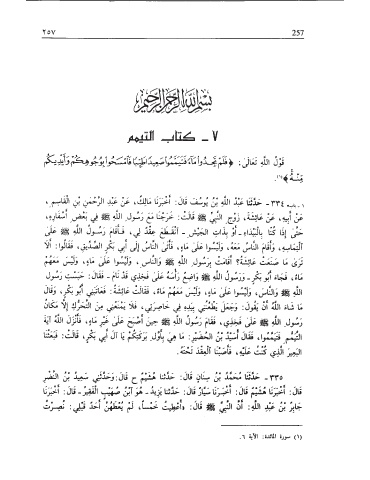 ٢٥٧ 257
بسم الله الرحمن الرحيم
٧ - كتاب التيمم
قَوْلُ اللَّهِ تَعَالَى: ﴿فَلَمْ تَجِدُوا مَاءً فَتَيَمَّمُوا صَعِيدًا طَيِّبًا فَامْسَحُوا بِوُجُوهِكُمْ وَأَيْدِيكُمْ
مِنْهُ﴾(١).
١ - باب ٣٣٤ - حَدَّثَنَا عَبْدُ اللَّهِ بْنُ يُوسُفَ قَالَ: أَخْبَرَنَا مَالِكٌ، عَنْ عَبْدِ الرَّحْمٰنِ بْنِ الْقَاسِمِ،
عَنْ أَبِيهِ، عَنْ عَائِشَةَ، زَوْجِ النَّبِيِّ ﷺ قَالَتْ: خَرَجْنَا مَعَ رَسُولِ اللَّهِ ﷺ فِي بَعْضِ أَسْفَارِهِ،
حَتَّى إِذَا كُنَّا بِالْبَيْدَاءِ - أَوْ بِذَاتِ الْجَيْشِ - انْقَطَعَ عِقْدٌ لِي، فَأَقَامَ رَسُولُ اللَّهِ ﷺ عَلَى
الْتِمَاسِهِ، وَأَقَامَ النَّاسُ مَعَهُ، وَلَيْسُوا عَلَى مَاءٍ، فَأَتَى النَّاسُ إِلَى أَبِي بَكْرٍ الصِّدِّيقِ، فَقَالُوا: أَلَا
تَرَى مَا صَنَعَتْ عَائِشَةُ؟ أَقَامَتْ بِرَسُولِ اللَّهِ ﷺ وَالنَّاسِ، وَلَيْسُوا عَلَى مَاءٍ، وَلَيْسَ مَعَهُمْ
مَاءٌ، فَجَاءَ أَبُو بَكْرٍ - وَرَسُولُ اللَّهِ ﷺ وَاضِعٌ رَأْسَهُ عَلَى فَخِذِي قَدْ نَامَ - فَقَالَ: حَبَسْتِ رَسُولَ
اللَّهِ ﷺ وَالنَّاسَ، وَلَيْسُوا عَلَى مَاءٍ، وَلَيْسَ مَعَهُمْ مَاءٌ، فَقَالَتْ عَائِشَةُ: فَعَاتَبَنِي أَبُو بَكْرٍ، وَقَالَ
مَا شَاءَ اللَّهُ أَنْ يَقُولَ: وَجَعَلَ يَطْعُنُنِي بِيَدِهِ فِي خَاصِرَتِي، فَلَا يَمْنَعُنِي مِنَ التَّحَرُّكِ إِلَّا مَكَانُ
رَسُولِ اللَّهِ ﷺ عَلَى فَخِذِي، فَقَامَ رَسُولُ اللَّهِ ﷺ حِينَ أَصْبَحَ عَلَى غَيْرِ مَاءٍ، فَأَنْزَلَ اللَّهُ آيَةَ
التَّيَمُّمِ فَتَيَمَّمُوا، فَقَالَ أُسَيْدُ بْنُ الْحُضَيْرِ: مَا هِيَ بِأَوَّلِ بَرَكَتِكُمْ يَا آلَ أَبِي بَكْرٍ، قَالَتْ: فَبَعَثْنَا
الْبَعِيرَ الَّذِي كُنْتُ عَلَيْهِ، فَأَصَبْنَا الْعِقْدَ تَحْتَهُ.
٣٣٥ - حَدَّثَنَا مُحَمَّدُ بْنُ سِنَانٍ قَالَ: حَدَّثَنَا هُشَيْمٌ ح قَالَ: وَحَدَّثَنِي سَعِيدُ بْنُ النَّضْرِ
قَالَ: أَخْبَرَنَا هُشَيْمٌ قَالَ: أَخْبَرَنَا سَيَّارٌ قَالَ: حَدَّثَنَا يَزِيدُ - هُوَ ابْنُ صُهَيْبٍ الْفَقِيرُ - قَالَ: أَخْبَرَنَا
جَابِرُ بْنُ عَبْدِ اللَّهِ: أَنَّ النَّبِيَّ ﷺ قَالَ: «أُعْطِيتُ خَمْسًا، لَمْ يُعْطَهُنَّ أَحَدٌ قَبْلِي: نُصِرْتُ
(١) سورة المائدة: الآية ٦.